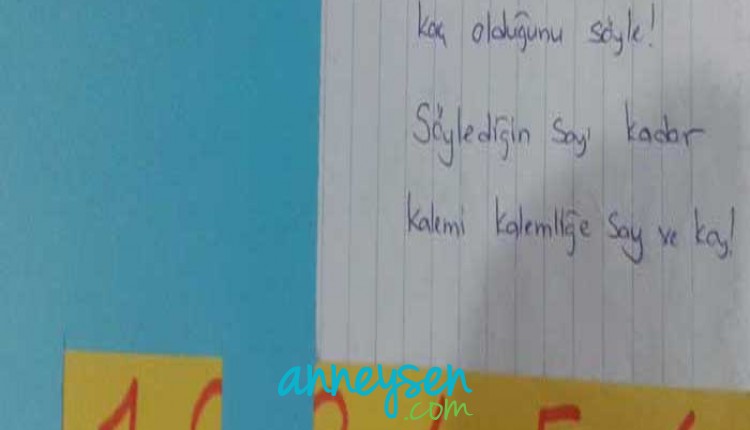 kaç olduğunu söyle!
Söylediğin sayı kadar
kalemi kalemliğe say ve koy!
anneysen
.com
1 2 3 4 5 6